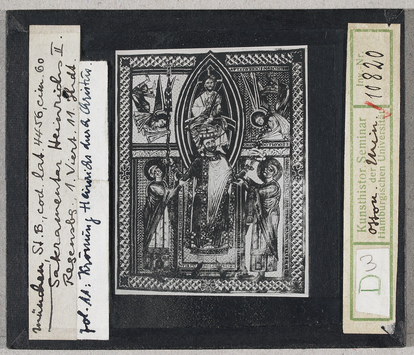 München St.B, cod. lat 4456 cim. 60
Sakramentar Heinrichs II.
Regensbg. 1. Viert. 11. Jhdt.
fol. 11: Krönung Heinrichs durch Christus.
Kunsthistor Seminar Inv. Nr.
der
Hamburgischen Universität
10820
Otton. Regensb.
DW